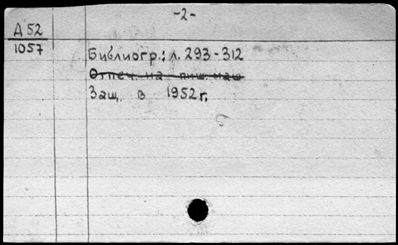 -2-
Д 52
1057
Библиогр.: л. 293-312
Отпеч. на пиш. маш
Защ. в 1952 г.